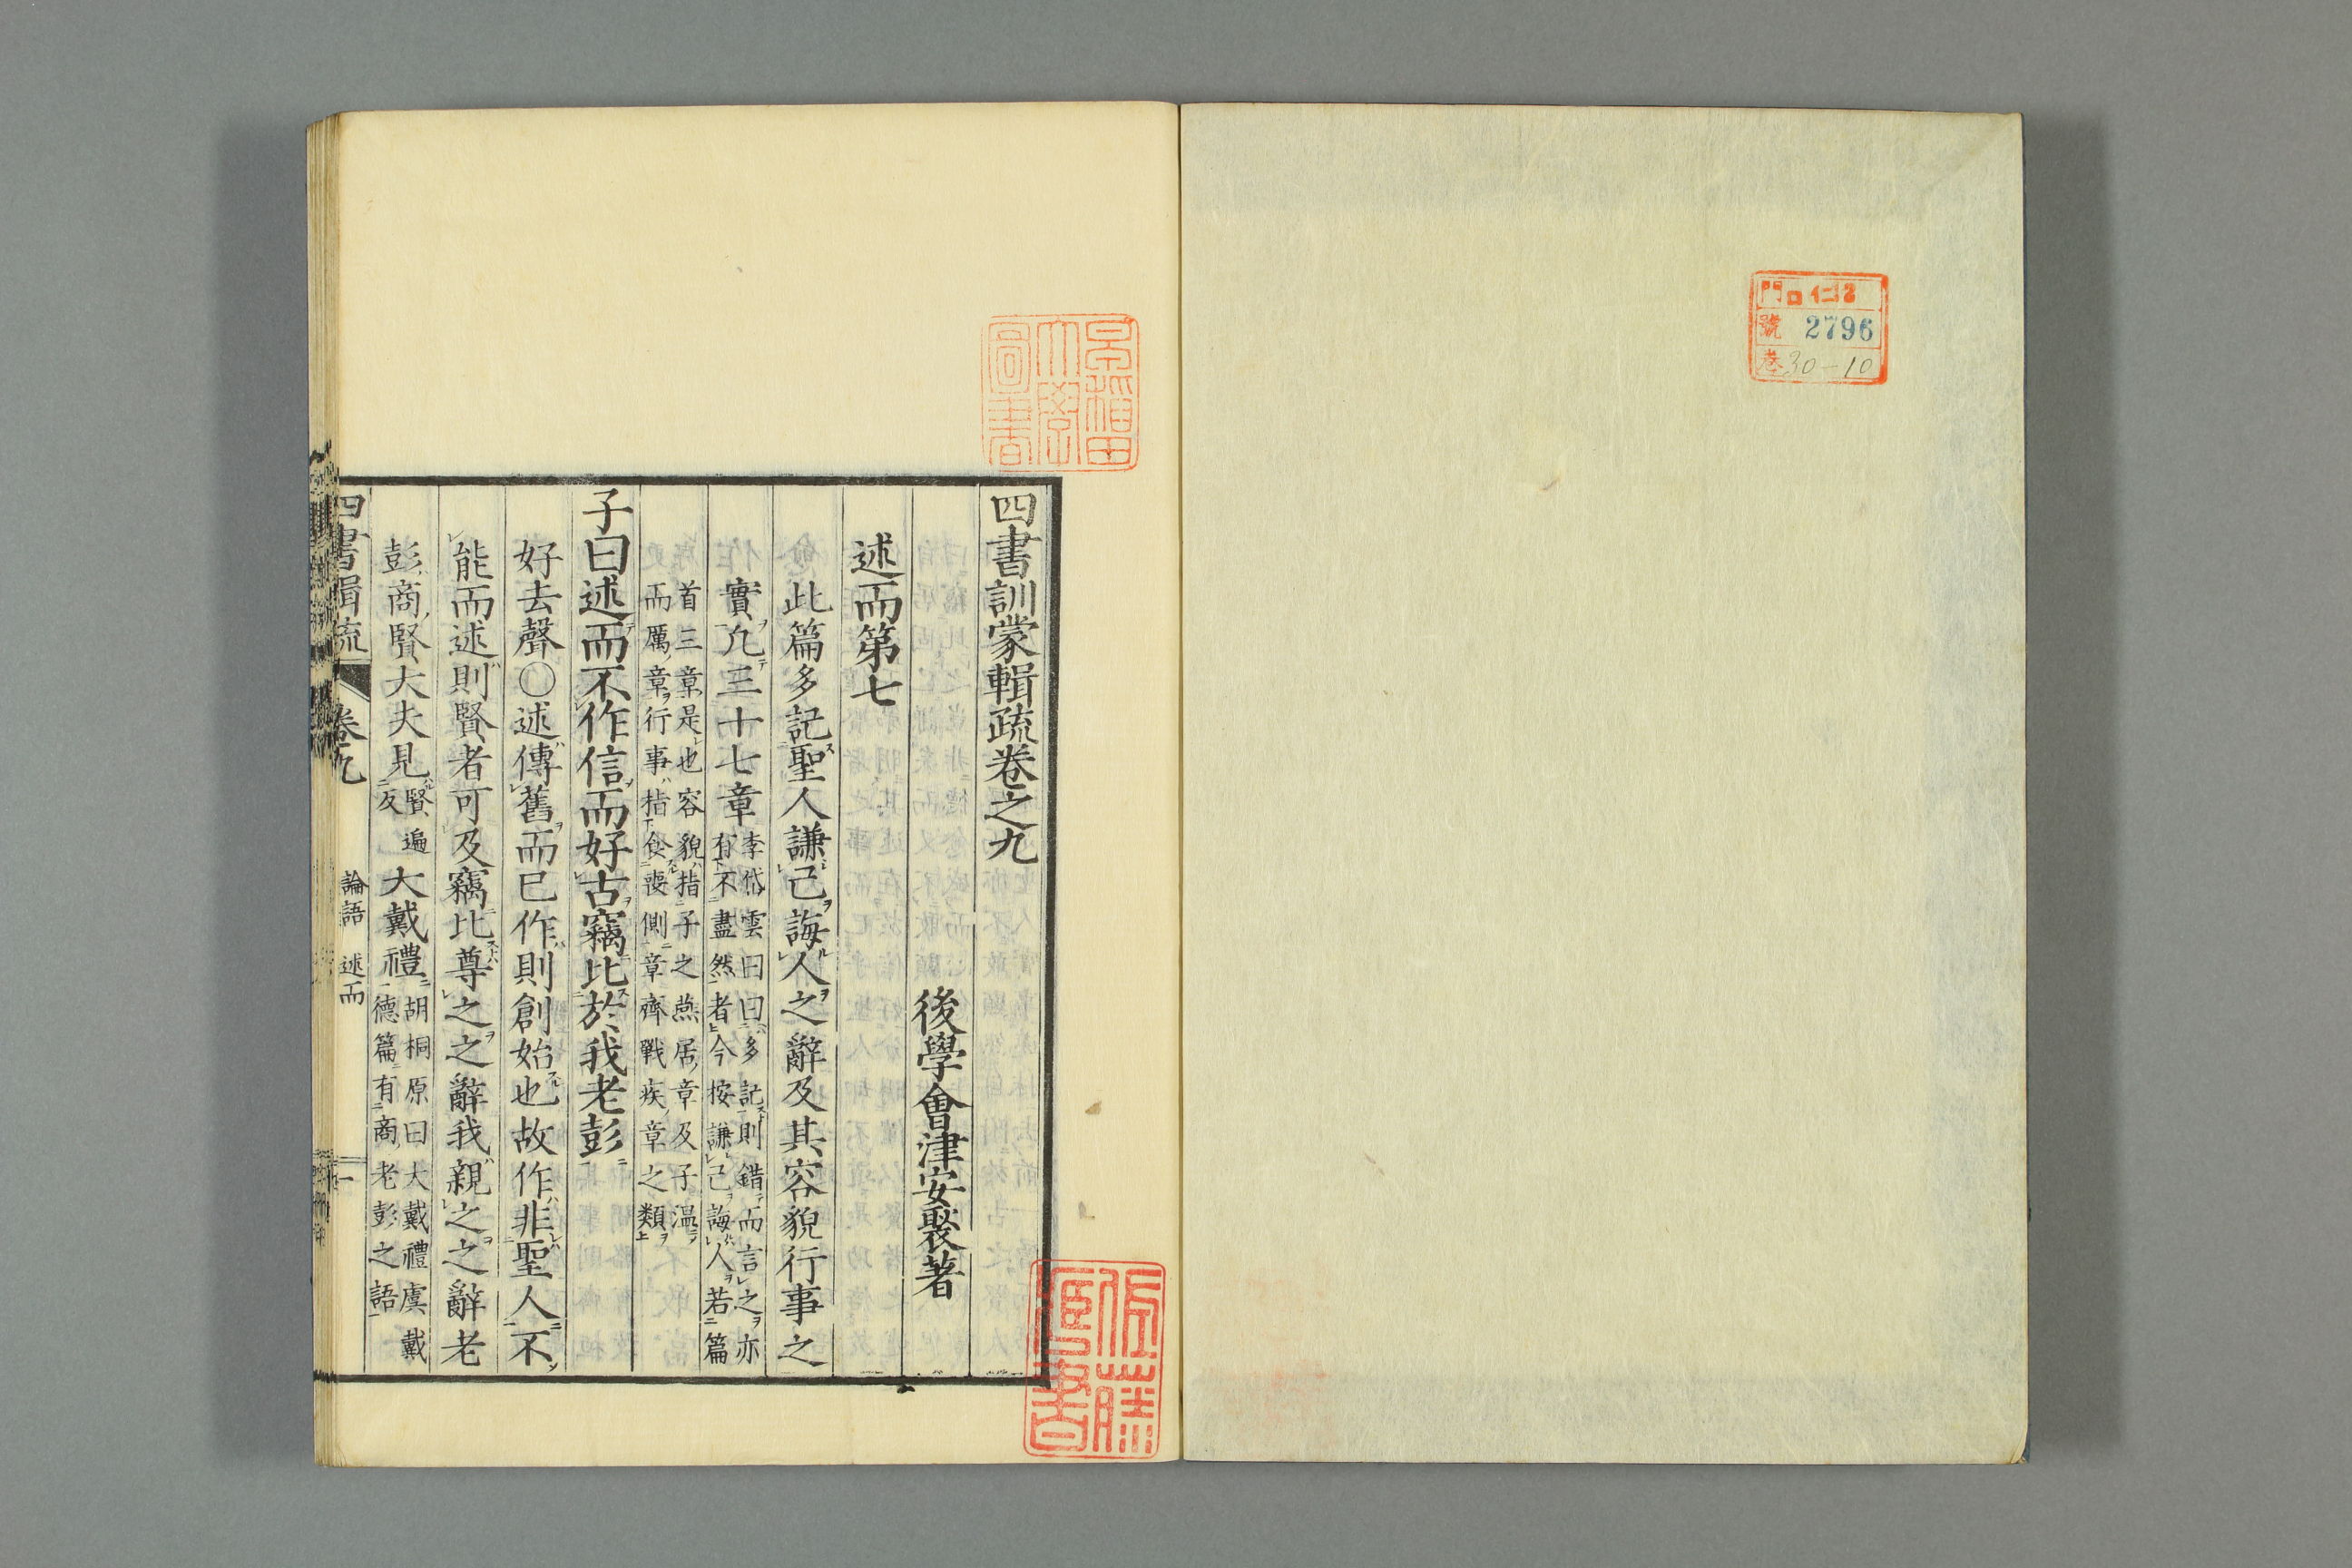 門 ロ仁12
號 2796
巻 30-10
早稲田
大學
圖書
四書訓蒙輯疏卷之九
後學會津安褧著
述而第七
此篇多記聖人謙己誨人之辭及其容貌行事之
實凡三十七章
李岱雲曰曰多記則錯而言之亦
有不盡然者今按謙己誨人若篇
首三章是也容貌指子之燕居章及子溫
而厲章行事指食喪側章齊戰疾章之類
子曰述而不作信而好古竊比於我老彭
好去聲○述傳舊而已作則創始也故作非聖人不
能而述則賢者可及竊比尊之之辭我親之之辭老
彭商賢大夫見
賢遍
反
大戴禮
胡桐原曰大戴禮虞戴
德篇有商老彭之語
四書輯疏 卷九 論語 述而 一
佐藤
圖書